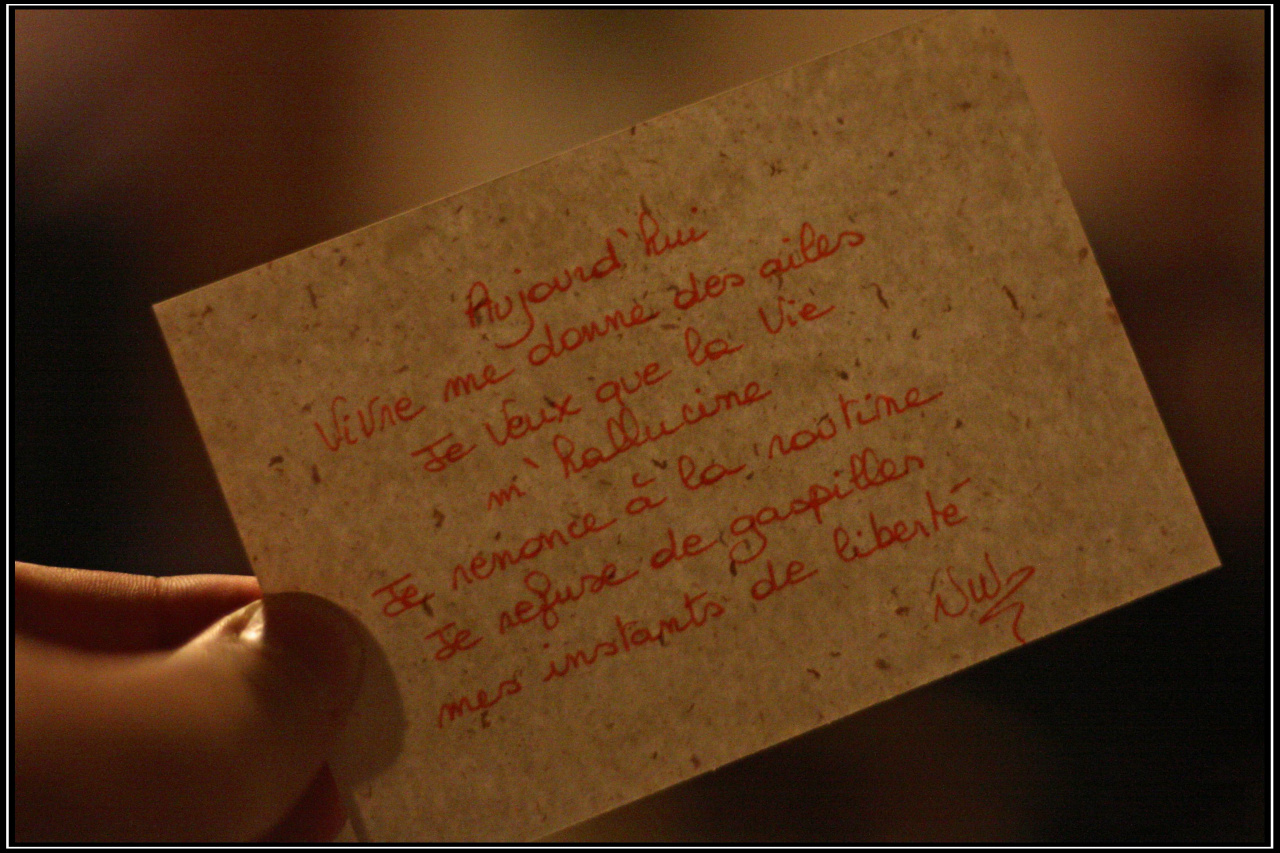 Aujourd'hui
Vivre me donne des ailes
Je veux que la Vie
m'hallucine
Je renonce à la routine
Je refuse de gaspiller
mes instants de liberté